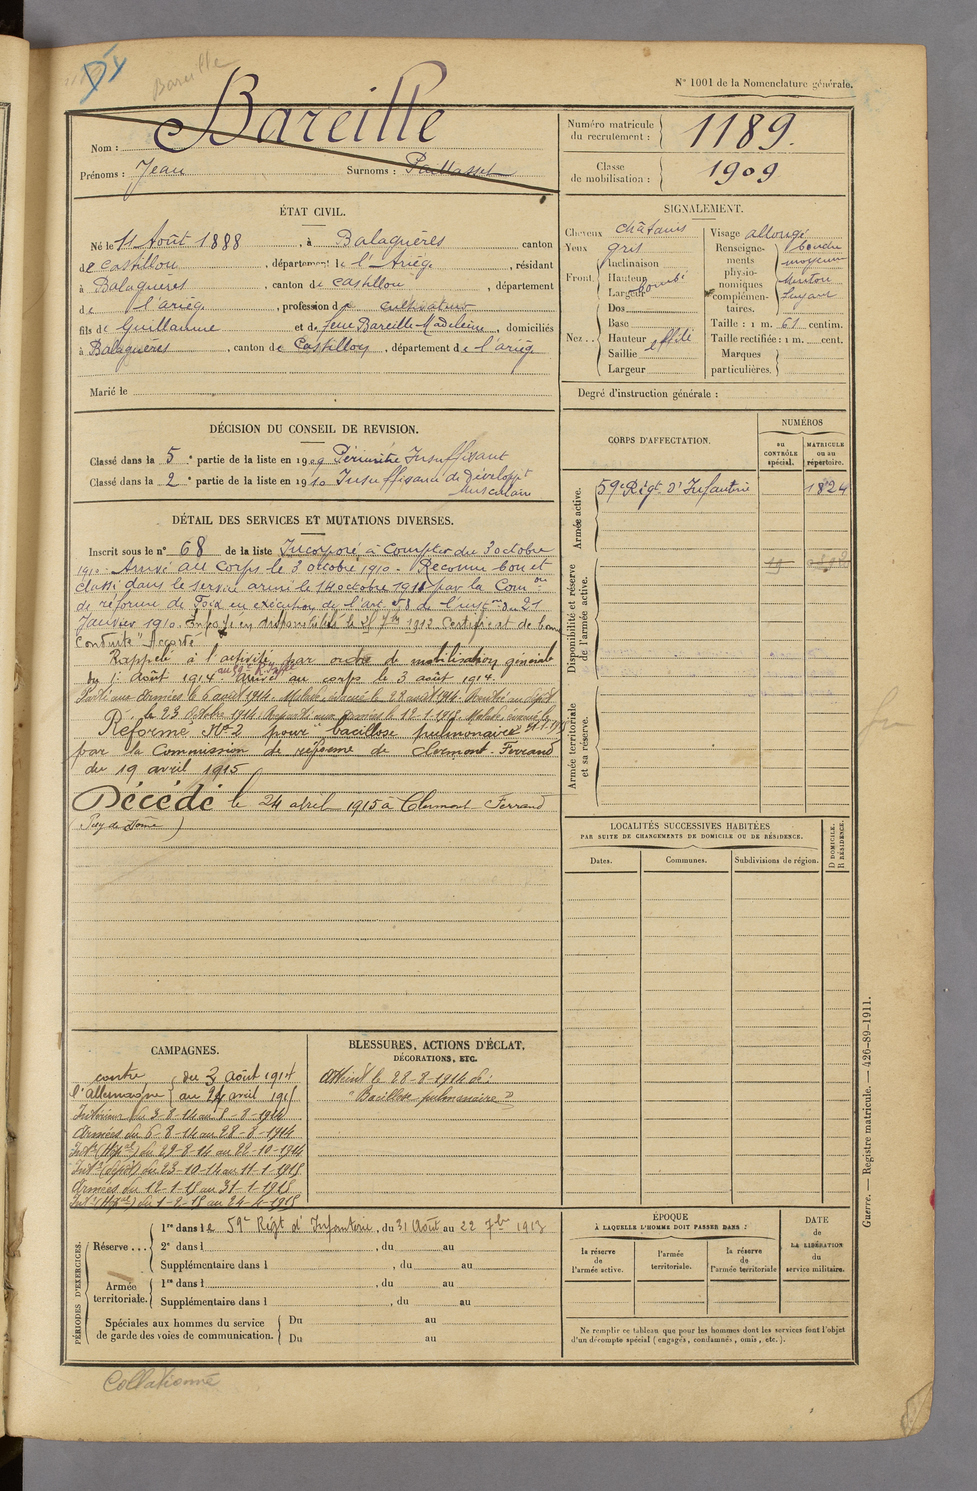 Bareille
N° 1001 de la Nomenclature générale.
Nom : Bareille
Prénoms : Jean Surnoms :
Numéro matricule du recrutement : 1189.
Classe de mobilisation : 1909
ÉTAT CIVIL.
Né le 11 Août 1888, à Balaguères canton
de Castillon, département de l'Ariège, résidant
à Balaguères, canton de Castillon, département
de l'ariège, profession de cultivateur
fils de Guillaume et de feue Bareille Madeleine, domiciliés
à Balaguères, canton de Castillon, département de l'ariège
Marié le
SIGNALEMENT.
Cheveux châtains
Yeux gris
Front. Inclinaison
Hauteur bombé
Largeur
Nez . . Dos
Base
Hauteur effilé
Saillie
Largeur
Visage allongé
Renseignements physionomiques complémentaires. bouche moyenne menton fuyant
Taille : 1 m. 61 centim.
Taille rectifiée : 1 m. cent.
Marques particulières.
Degré d'instruction générale :
DÉCISION DU CONSEIL DE REVISION.
Classé dans la 5e partie de la liste en 1909 Périmètre Insuffisant
Classé dans la 2e partie de la liste en 1910 Insuffisance de Développt
musculaire
CORPS D'AFFECTATION.
NUMÉROS
AU CONTRÔLE spécial.
MATRICULE ou au répertoire.
Armée active.
59e Régt d'Infanterie 1824
Disponibilité et réserve de l'armée active.
Armée territoriale et sa réserve.
DÉTAIL DES SERVICES ET MUTATIONS DIVERSES.
Inscrit sous le n° 68 de la liste Incorporé à Compter du 3 octobre
1910. Arrivé au Corps le 3 octobre 1910. Reconnu bon et
classé dans le service armé le 14 octobre 1910 par la Comon
de réforme de Foix en exécution de l'art. 58 de l'instron du 21
Janvier 1910. Envoyé en disponibilité le 25 7bre 1912 Certificat de bonne
Conduite "Accordé"
Rappelé à l'activité par ordre de mobilisation générale
du 1er Août 1914. arrivé au corps le 3 août 1914.
Parti aux Armées le 6 août 1914. Malade évacué le 28 août 1914. Rentré au dépôt
le 23 Octobre 1914. Reparti aux armées le 12-1-1915. Malade évacué le 31-1-1915
Réformé No 2 pour "bacillose pulmonaire"
par la commission de réforme de Clermont-Ferrand
du 19 avril 1915
Décédé le 24 avril 1915 à Clermont Ferrand
(Puy de Dôme)
LOCALITÉS SUCCESSIVES HABITÉES
PAR SUITE DE CHANGEMENTS DE DOMICILE OU DE RÉSIDENCE.
Dates.
Communes.
Subdivisions de région.
D DOMICILE.
R RÉSIDENCE.
CAMPAGNES.
contre l'Allemagne du 3 août 1914
au 24 avril 1915
Intérieur du 3-8-14 au 5-8-1914
Armées du 6-8-14 au 28-8-1914
Intr (Hôpal) du 29-8-14 au 22-10-1914
Intr (dépôt) du 23-10-14 au 11-1-1915
Armées du 12-1-15 au 31-1-1915
Intr (Hôpal) du 1-2-15 au 24-4-1915
BLESSURES, ACTIONS D'ÉCLAT,
DÉCORATIONS, ETC.
Atteint le 28-8-1914 de :
"Bacillose pulmonaire"
PÉRIODES D'EXERCICES.
Réserve . . . 1re dans le 59e Régt d'Infanterie, du 31 Août au 22 7bre 1913
2e dans l , du au
Supplémentaire dans l , du au
Armée territoriale. 1re dans l , du au
Supplémentaire dans l , du au
Spéciales aux hommes du service de garde des voies de communication. Du au
Du au
ÉPOQUE
À LAQUELLE L'HOMME DOIT PASSER DANS :
la réserve de l'armée active.
l'armée territoriale.
la réserve de l'armée territoriale
DATE de LA LIBÉRATION du service militaire.
Ne remplir ce tableau que pour les hommes dont les services font l'objet
d'un décompte spécial (engagés, condamnés, omis, etc.).
Guerre. — Registre matricule. — 426-89-1911.
Collationné